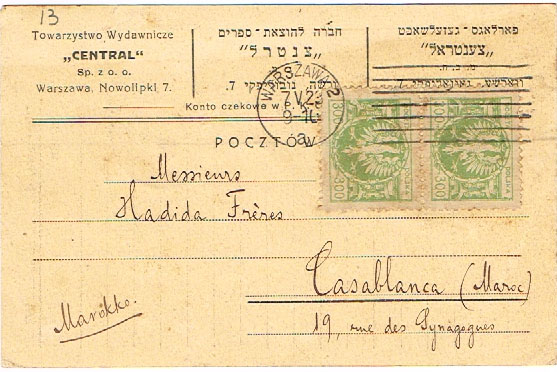 13
Towarzystwo Wydawnicze
„CENTRAL"
Sp. z o. o.
Warszawa, Nowolipki 7.
חברה להוצאת־ספרים
"צנטרל"
ורשה, נובוליפקי 7.
פארלאגס־געזעלשאפט
"צענטראל"
ווארשע, נאוואליפקי 7.
Konto czekowe w P. K.
WARSZAWA 2
7.V.23
9-10
a
300
300
POCZTÓW
Messieurs
Hadida Frères
Casablanca (Maroc)
19, rue des Synagogues
Marokko.